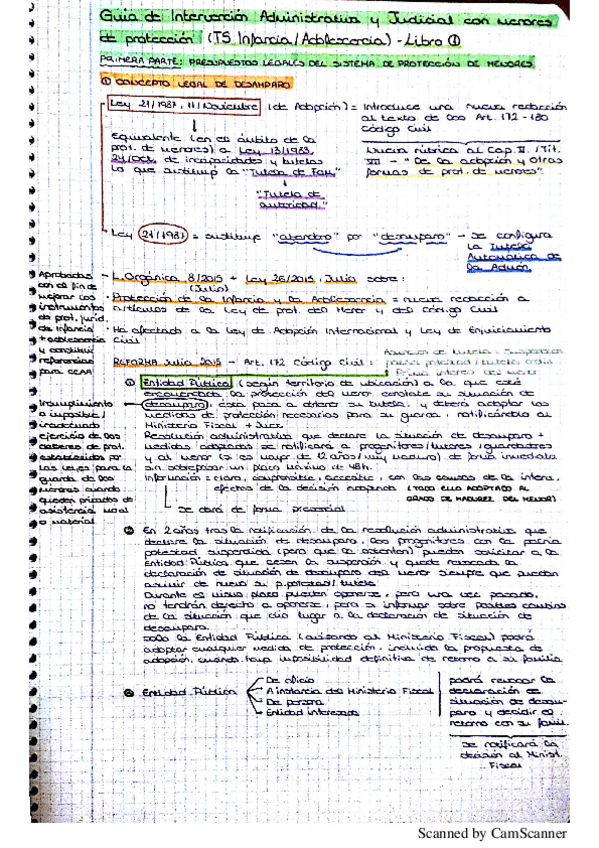 Guía de Intervención Administrativa y Judicial con menores
de protección (TS Infancia/Adolescencia) - Libro ①
PRIMERA PARTE: PRESUPUESTOS LEGALES DEL SISTEMA DE PROTECCIÓN DE MENORES
① CONCEPTO LEGAL DE DESAMPARO
Ley 21/1987, 11 Noviembre (de Adopción) = Introduce una nueva redacción
al texto de los Art. 172 - 180
Código Civil
Equivalente (en el ámbito de la
prot. de menores) a Ley 13/1983,
24/Oct. de incapacidades y tutelas
lo que sustituyó la "Tutela de Fam."
"Tutela de
autoridad."
Nueva rúbrica al Cap. V. /Tit.
VII - "De la adopción y otras
formas de prot. de menores".
Ley 21/1987 = sustituye "abandono" por "desamparo" - se configura
la Tutela
Automática de
la Admón.
Aprobadas
con el fin de
mejorar los
instrumentos
de prot. juríd.
de infancia
+ adolescencia
y constituir
referencias
para CCAA
- L. Orgánica 8/2015 + Ley 26/2015, Julio sobre:
(Julio)
· Protección de la Infancia y la Adolescencia = nueva redacción a
artículos de la Ley de prot. del Menor y del Código Civil
· Ha afectado a la Ley de Adopción Internacional y Ley de Enjuiciamiento
Civil
REFORMA Julio 2015 - Art. 172 Código Civil:
① Entidad Pública (según territorio de ubicación) a la que esté
encomendada la protección del menor constate su situación de
desamparo, ésta pasa a obtener su tutela, y deberá adoptar las
medidas de protección necesarias para su guarda, notificándolo al
Ministerio Fiscal + Juez
Resolución administrativa que declare la situación de desamparo +
medidas adoptadas se notificará a progenitores/tutores/guardadores
y al menor (si es mayor de 12 años/muy maduro) de forma inmediata
sin sobrepasar un plazo máximo de 48h.
Información = clara, comprensible, accesible, con las causas de la interv.,
efectos de la decisión adoptada (TODO ELLO ADAPTADO AL
GRADO DE MADUREZ DEL MENOR)
se dará de forma presencial
Incumplimiento
o imposible/
inadecuado
ejercicio de los
deberes de prot.
establecidos por
las leyes para la
guarda de los
menores cuando
queden privados de
asistencia moral
o material
② En 2 años tras la notificación de la resolución administrativa que
declare la situación de desamparo, los progenitores con la patria
potestad suspendida (pero que la ostenten) pueden solicitar a la
Entidad Pública que cesen la suspensión y quede revocada la
declaración de situación de desamparo del menor siempre que puedan
asumir de nuevo su p. potestad/tutela.
Durante el mismo plazo pueden oponerse, pero una vez pasado,
no tendrán derecho a oponerse, pero sí informar sobre posibles cambios
de la situación que dio lugar a la declaración de situación de
desamparo.
Sólo la Entidad Pública (avisando al Ministerio Fiscal) podrá
adoptar cualquier medida de protección, incluida la propuesta de
adopción, cuando haya imposibilidad definitiva de retorno a su familia
③ Entidad Pública
De oficio
A instancia del Ministerio Fiscal
De persona
Entidad interesada
podrá revocar la
declaración de
situación de desam-
paro y decidir el
retorno con su famil.
se notificará la
decisión al Minist.
Fiscal
Scanned by CamScanner